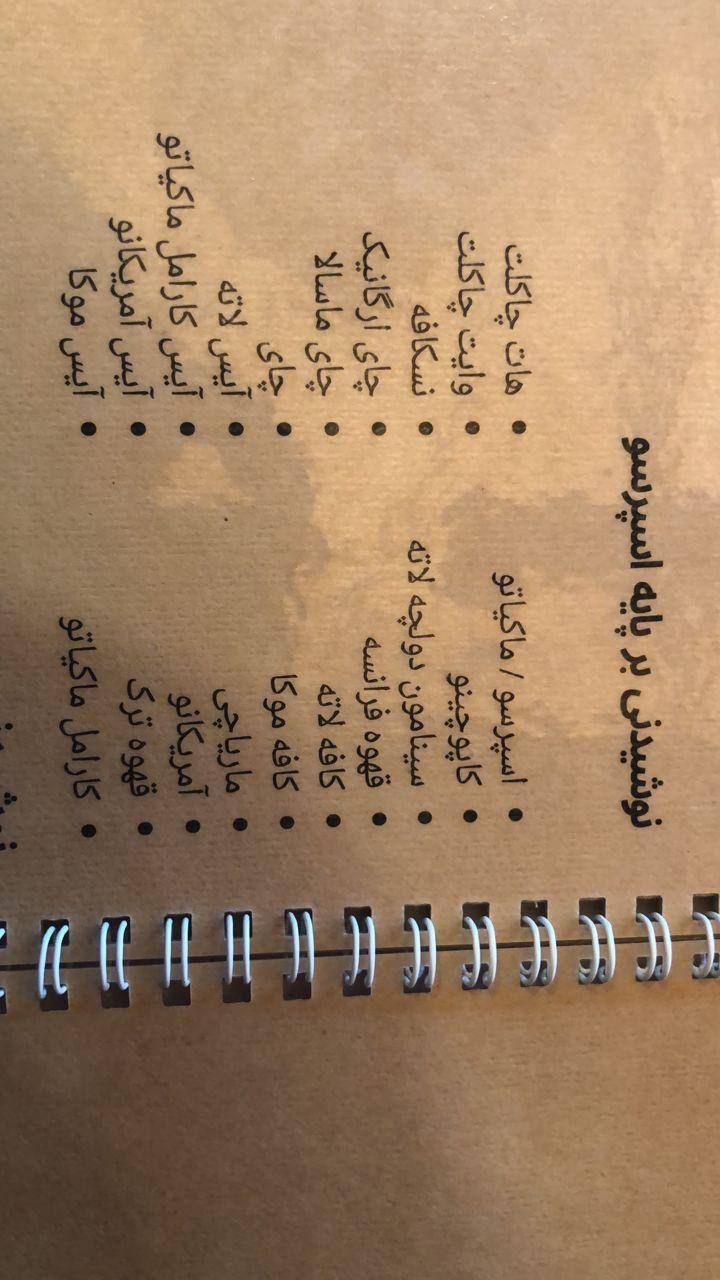 نوشیدنی بر پایه اسپرسو
• اسپرسو / ماکیاتو
• کاپوچینو
• سینامون دولچه لاته
• قهوه فرانسه
• کافه لاته
• کافه موکا
• ماریاچی
• آمریکانو
• قهوه ترک
• کارامل ماکیاتو
• هات چاکلت
• وایت چاکلت
• نسکافه
• چای ارگانیک
• چای ماسالا
• چای
• آیس لاته
• آیس کارامل ماکیاتو
• آیس آمریکانو
• آیس موکا